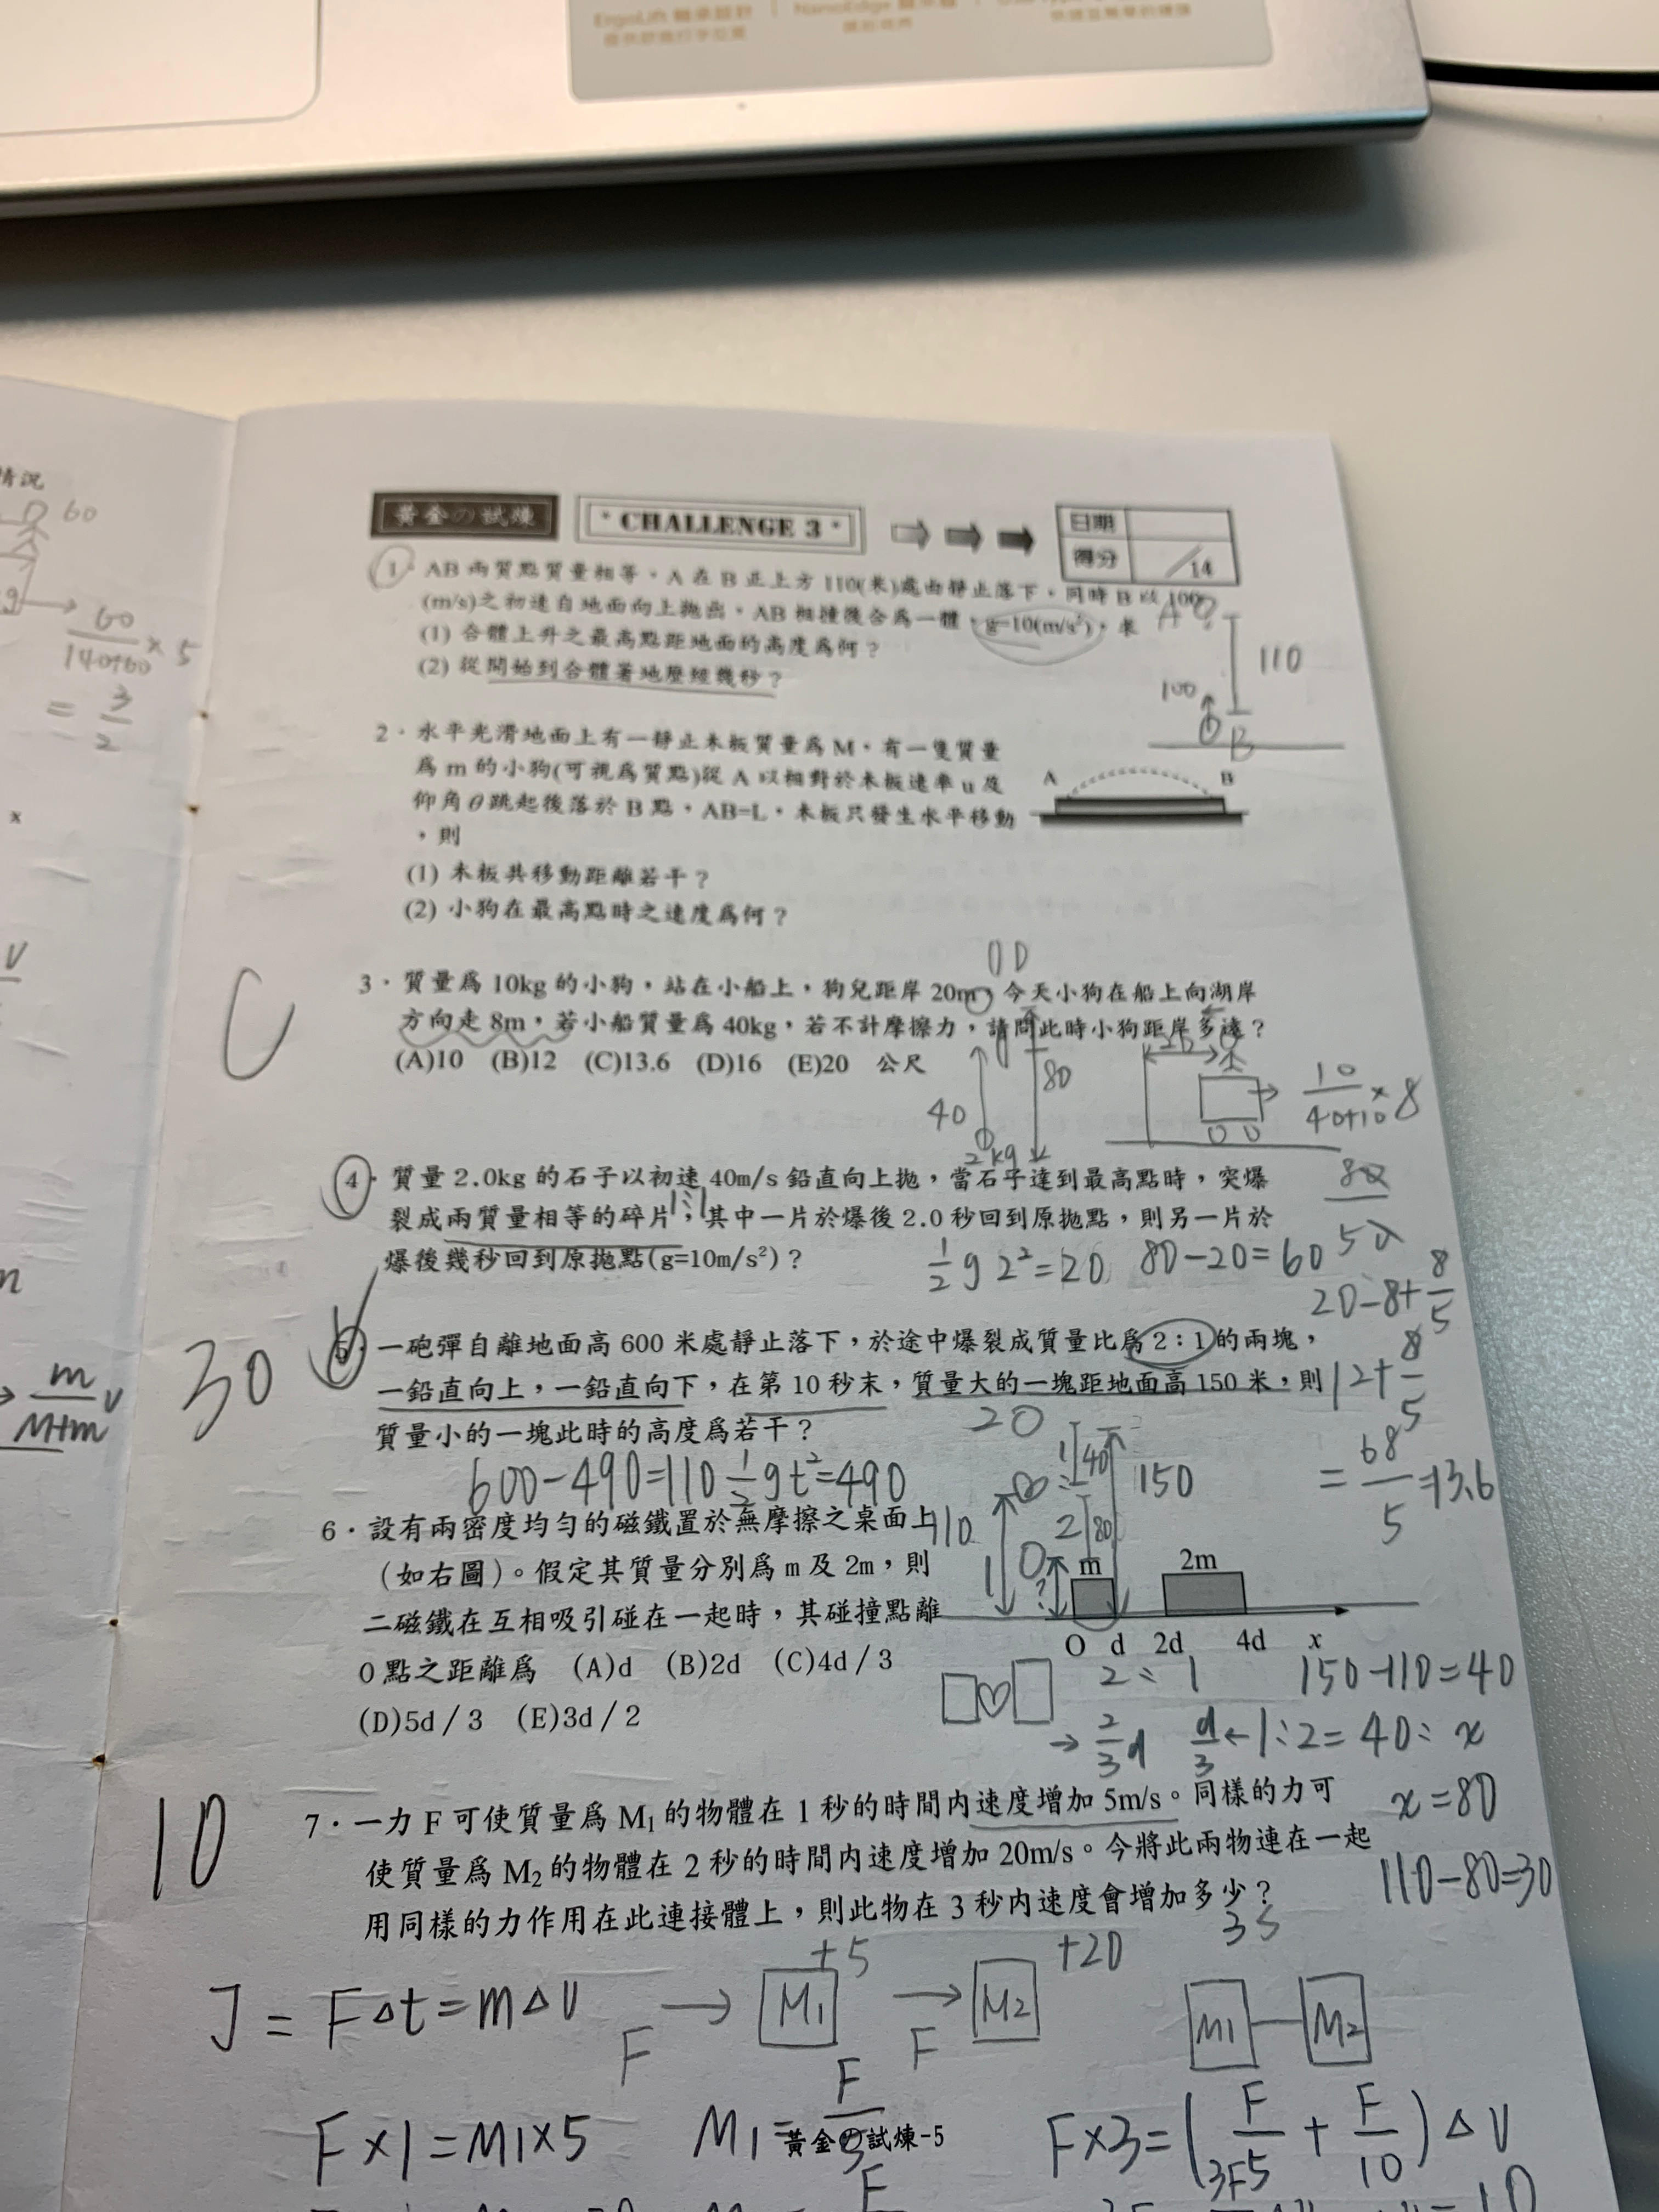 情況
60
60
140+60
× 5
= 3
2
x
V
m
M+m
V
黃金の試煉
CHALLENGE 3
日期
得分
/14
1. AB兩質點質量相等，A在B正上方110(米)處由靜止落下，同時B以100
(m/s)之初速自地面向上拋出，AB相撞後合為一體，g=10(m/s²)，求
(1) 合體上升之最高點距地面的高度為何？
(2) 從開始到合體著地歷經幾秒？
A
110
100
B
2. 水平光滑地面上有一靜止木板質量為M，有一隻質量
為m的小狗(可視為質點)從A以相對於木板速率u及
仰角θ跳起後落於B點，AB=L，木板只發生水平移動
，則
(1) 木板共移動距離若干？
(2) 小狗在最高點時之速度為何？
A
B
C
3. 質量為10kg的小狗，站在小船上，狗兒距岸20m，今天小狗在船上向湖岸
方向走8m，若小船質量為40kg，若不計摩擦力，請問此時小狗距岸多遠？
(A)10 (B)12 (C)13.6 (D)16 (E)20 公尺
40
80
2kg
10
40+10
× 8
80
50
20-8+8/5
12+8/5
=68/5=13.6
4. 質量2.0kg的石子以初速40m/s鉛直向上拋，當石子達到最高點時，突爆
裂成兩質量相等的碎片，其中一片於爆後2.0秒回到原拋點，則另一片於
爆後幾秒回到原拋點(g=10m/s²)？
1:1
1/2 g 2²=20
80-20=60
30
5. 一砲彈自離地面高600米處靜止落下，於途中爆裂成質量比為2：1的兩塊，
一鉛直向上，一鉛直向下，在第10秒末，質量大的一塊距地面高150米，則
質量小的一塊此時的高度為若干？
600-490=110
1/2 gt²=490
20
40
150
110
2
80
6. 設有兩密度均勻的磁鐵置於無摩擦之桌面上
(如右圖)。假定其質量分別為m及2m，則
二磁鐵在互相吸引碰在一起時，其碰撞點離
O點之距離為 (A)d (B)2d (C)4d/3
(D)5d/3 (E)3d/2
m
2m
O d 2d 4d x
2:1
→ 2/3 d
d/3 ←
150-110=40
1:2=40:x
x=80
110-80=30
10
7. 一力F可使質量為M₁的物體在1秒的時間內速度增加5m/s。同樣的力可
使質量為M₂的物體在2秒的時間內速度增加20m/s。今將此兩物連在一起
用同樣的力作用在此連接體上，則此物在3秒內速度會增加多少？
3s
+5
+20
J = F△t=m△V
F → M1
F → M2
M1 M2
F×1=M1×5
M1=F/5
F×3=(F/5+F/10)△V
黃金の試煉-5